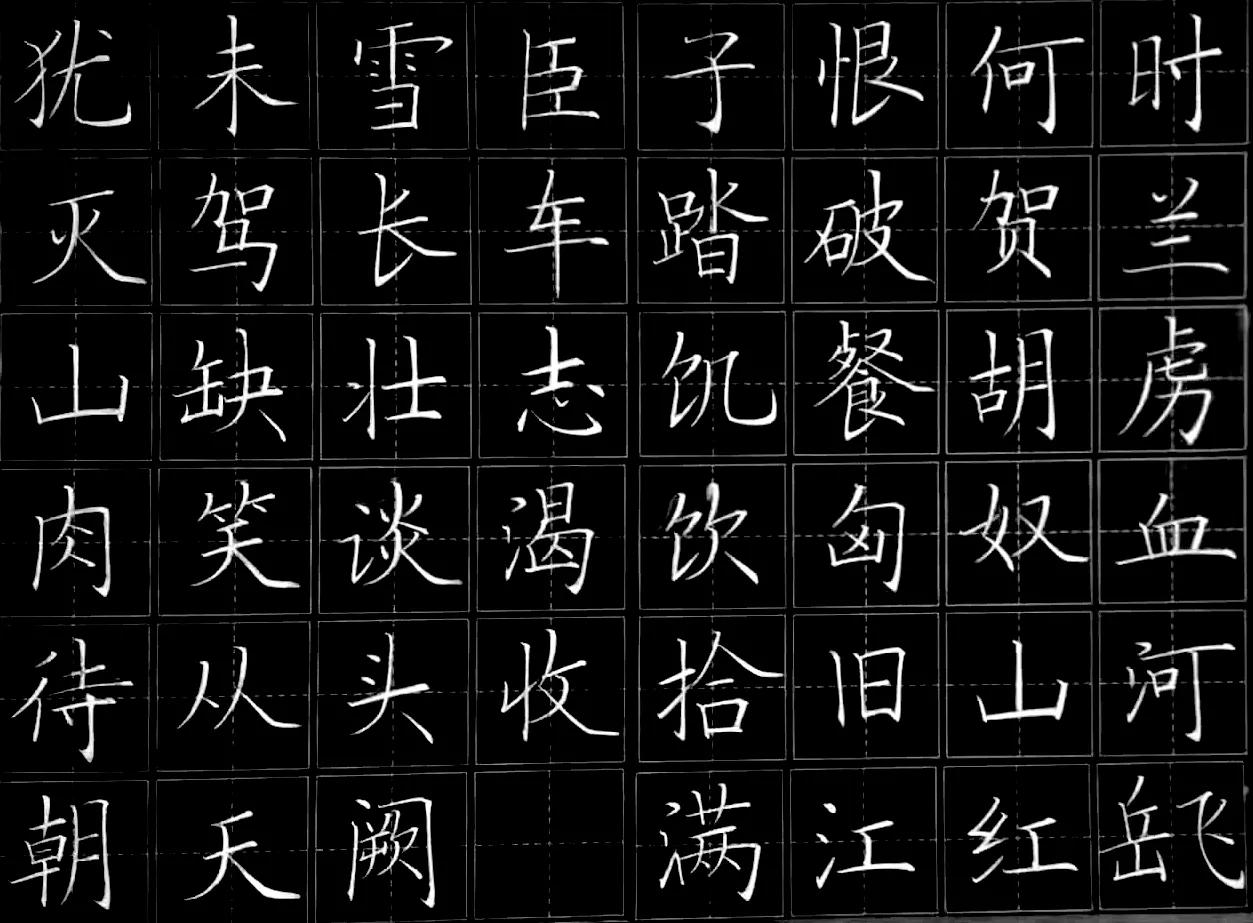 犹未雪臣子恨何时
灭驾长车踏破贺兰
山缺壮志饥餐胡虏
肉笑谈渴饮匈奴血
待从头收拾旧山河
朝天阙 满江红岳飞